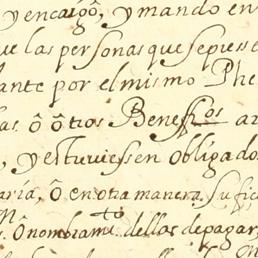 y encargó, y mando en
ue las personas que sepiesse
ante por el mismo Phe
las ô ôtros Benefi.os ar
, y estuviessen obligados
aria, ô en otra manera sufic
s. Ô nombram.to dellas de pagar